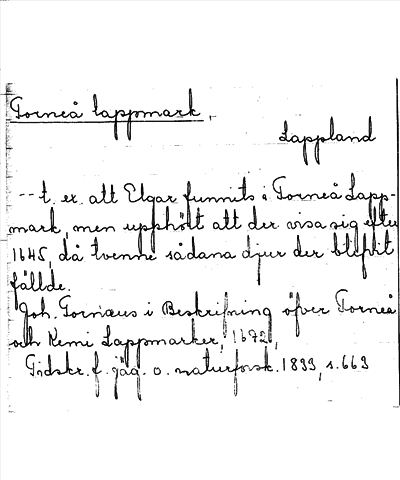 Torneå lappmark,
Lappland
-- t. ex. att Elgar funnits i Torneå Lapp-
mark, men upphört att der visa sig efter
1645, då tvenne sådana djur der blefvit
fällde.
Joh. Tornæus i Beskrifning öfver Torneå
och Kemi Lappmarker, 1672,
Tidskr. f. jäg. o. naturforsk. 1833, s. 663